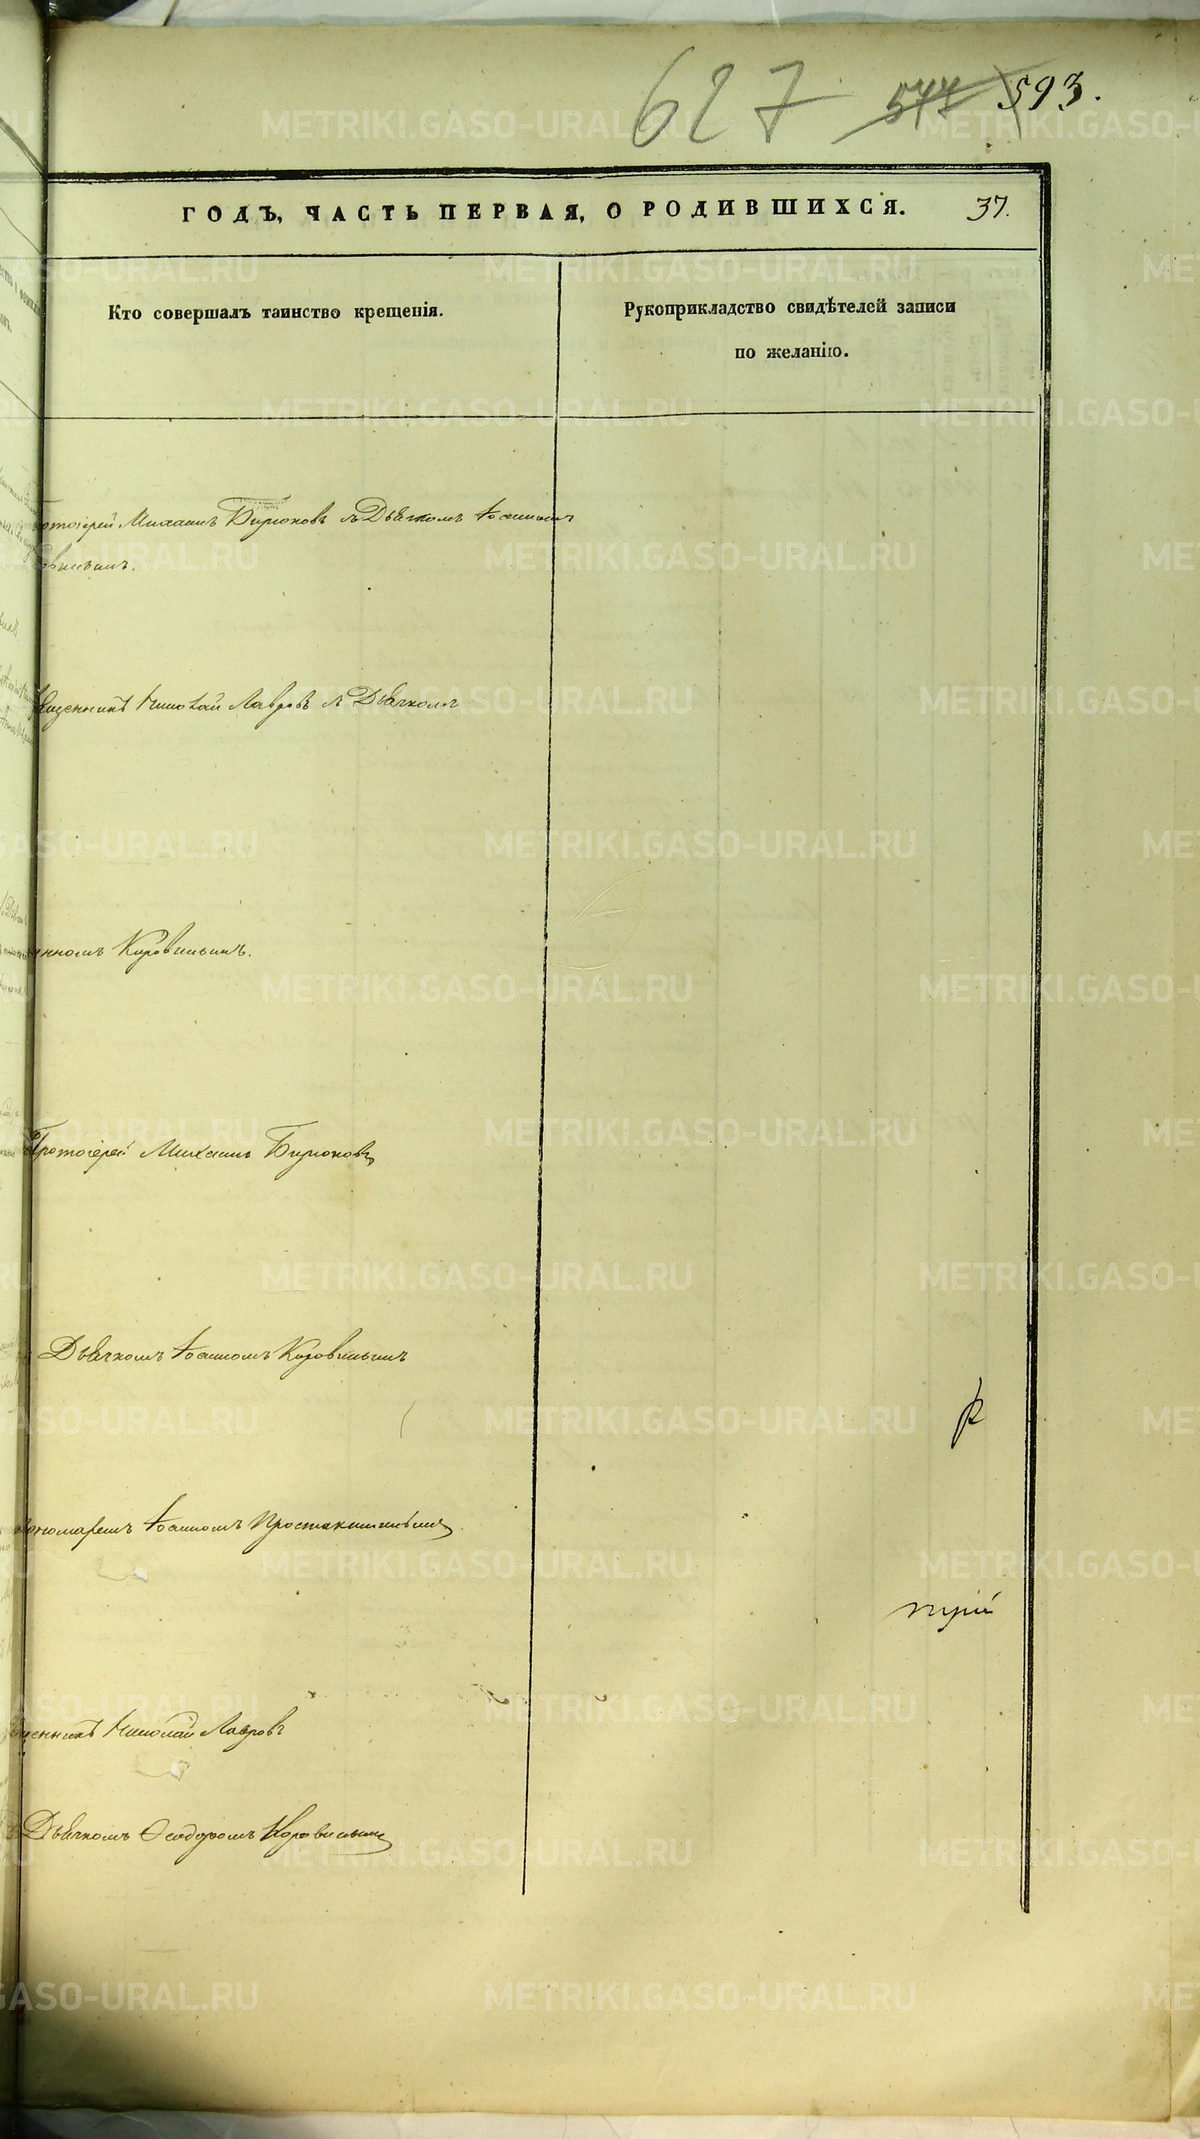 627 577 593.
ГОДЪ, ЧАСТЬ ПЕРВАЯ, О РОДИВШИХСЯ. 37.
Кто совершалъ таинство крещенія.
Рукоприкладство свидѣтелей записи
по желанію.
Протоіерей Михаилъ Бирюковъ съ Дьячкомъ Іоанномъ
Священникъ Николай Лавровъ съ Дьячкомъ
Коровинымъ.
Протоіерей Михаилъ Бирюковъ
Дьячкомъ Іоанномъ Коровинымъ
Пономаремъ Іоанномъ
Николай Лавровъ
Дьячкомъ Ѳеодоромъ Коровинымъ
METRIKI.GASO-URAL.RU